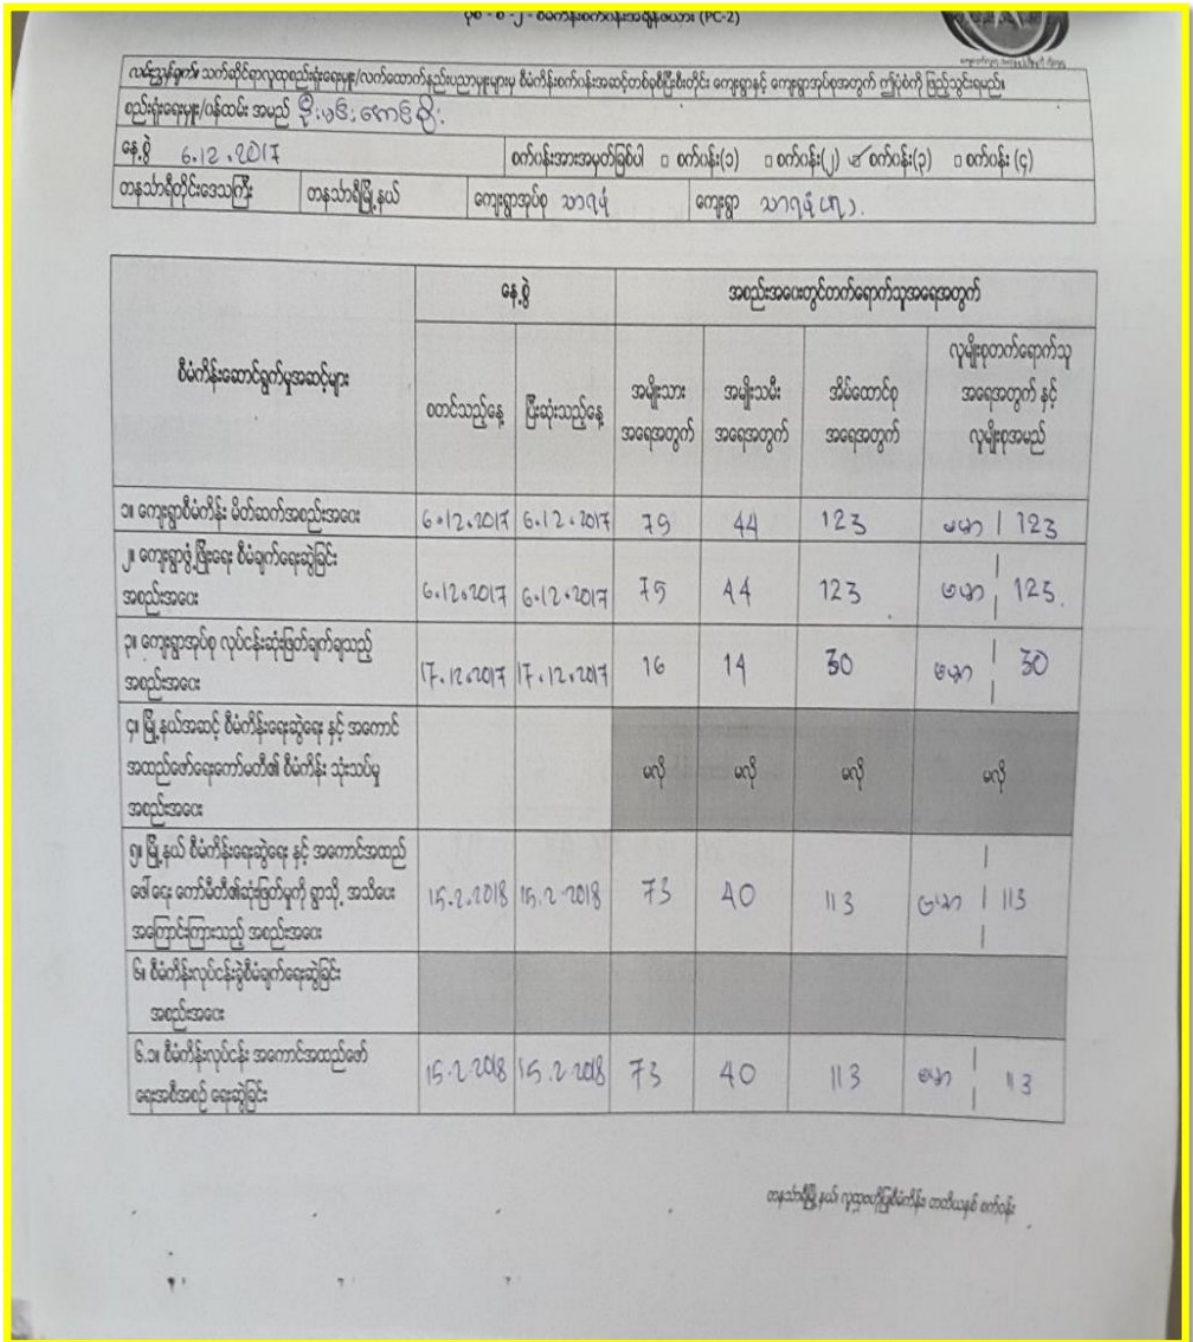 ပုံစံ - စ -၂ - စီမံကိန်းစက်ဝန်းအချိန်ဇယား (PC-2)
လမ်းညွှန်ချက်။ သက်ဆိုင်ရာလူထုစည်းရုံးရေးမှူး/လက်ထောက်နည်းပညာမှူးများမှ စီမံကိန်းစက်ဝန်းအဆင့်တစ်ခုစီပြီးစီးတိုင်း ကျေးရွာနှင့် ကျေးရွာအုပ်စုအတွက် ဤပုံစံကို ဖြည့်သွင်းရမည်။
စည်းရုံးရေးမှူး/ဝန်ထမ်း အမည်
နေ့စွဲ 6.12.2017 စက်ဝန်းအားအမှတ်ခြစ်ပါ □ စက်ဝန်း(၁) □ စက်ဝန်း(၂) ☑ စက်ဝန်း(၃) □ စက်ဝန်း (၄)
တနင်္သာရီတိုင်းဒေသကြီး တနင်္သာရီမြို့နယ် ကျေးရွာအုပ်စု သာရဖုံ ကျေးရွာ သာရဖုံ
နေ့စွဲ အစည်းအဝေးတွင်တက်ရောက်သူအရေအတွက်
စီမံကိန်းဆောင်ရွက်မှုအဆင့်များ စတင်သည့်နေ့ ပြီးဆုံးသည့်နေ့ အမျိုးသား အရေအတွက် အမျိုးသမီး အရေအတွက် အိမ်ထောင်စု အရေအတွက် လူမျိုးစုတက်ရောက်သူ အရေအတွက် နှင့် လူမျိုးစုအမည်
၁။ ကျေးရွာစီမံကိန်း မိတ်ဆက်အစည်းအဝေး 6.12.2017 6.12.2017 79 44 123 ဗမာ | 123
၂။ ကျေးရွာဖွံ့ဖြိုးရေး စီမံချက်ရေးဆွဲခြင်း
အစည်းအဝေး 6.12.2017 6.12.2017 79 44 123 ဗမာ | 123
၃။ ကျေးရွာအုပ်စု လုပ်ငန်းဆုံးဖြတ်ချက်ချသည့်
အစည်းအဝေး 17.12.2017 17.12.2017 16 14 30 ဗမာ | 30
၄။ မြို့နယ်အဆင့် စီမံကိန်းရေးဆွဲရေး နှင့် အကောင်
အထည်ဖော်ရေးကော်မတီ၏ စီမံကိန်း သုံးသပ်မှု မလို မလို မလို မလို
အစည်းအဝေး
၅။ မြို့နယ် စီမံကိန်းရေးဆွဲရေး နှင့် အကောင်အထည်
ဖေါ်ရေး ကော်မီတီ၏ဆုံးဖြတ်မှုကို ရွာသို့ အသိပေး 15.2.2018 15.2.2018 73 40 113 ဗမာ | 113
အကြောင်းကြားသည့် အစည်းအဝေး
၆။ စီမံကိန်းလုပ်ငန်းခွဲစီမံချက်ရေးဆွဲခြင်း
အစည်းအဝေး
၆.၁။ စီမံကိန်းလုပ်ငန်း အကောင်အထည်ဖော်
ရေးအစီအစဉ် ရေးဆွဲခြင်း 15.2.2018 15.2.2018 73 40 113 ဗမာ | 113
တနင်္သာရီမြို့နယ် လူထုဗဟိုပြုစီမံကိန်း တတိယနှစ် စက်ဝန်း